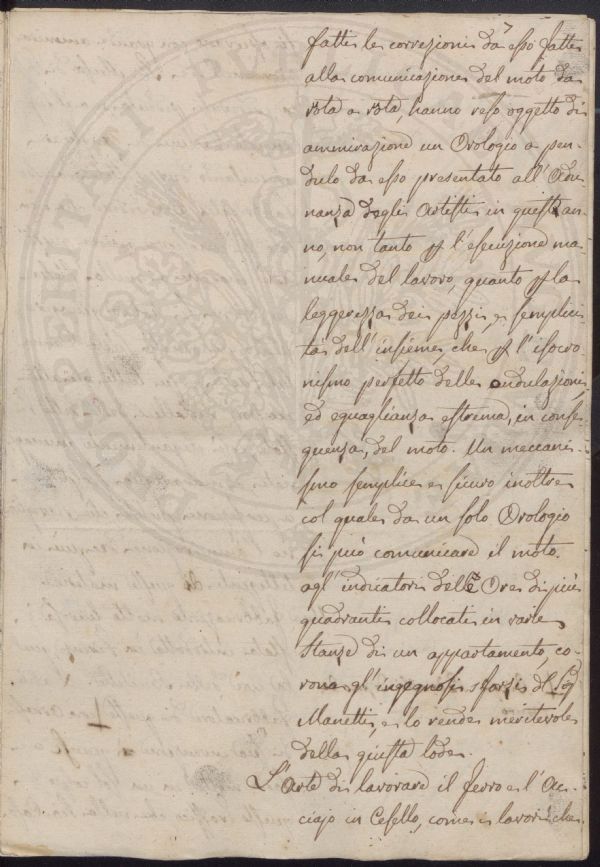 fatte le correzioni da esso fatte
alla comunicazione del moto da
rota a rota, hanno reso oggetto di
ammirazione un Orologio a pen-
dulo da esso presentato all'Adu-
nanza degli Artisti in quest'an-
no, non tanto p l'esecuzione ma-
nuale del lavoro, quanto p la
leggerezza dei pezzi, e semplici-
tà dell'insieme, che p l'isocro-
nismo perfetto delle ondulazioni,
ed eguaglianza estrema, in conse-
guenza, del moto. Un meccani-
smo semplice e sicuro inoltre
col quale da un solo Orologio
si può comunicare il moto
agl'indicatori delle Ore di più
quadranti collocati in varie
Stanze di un appartamento, co-
rona gl'ingegnosi sforzi del Sig
Manetti, e lo rende meritevole
della giusta lode.
L'Arte di lavorare il Ferro e l'Ac-
ciajo in Cesello, come i lavori che